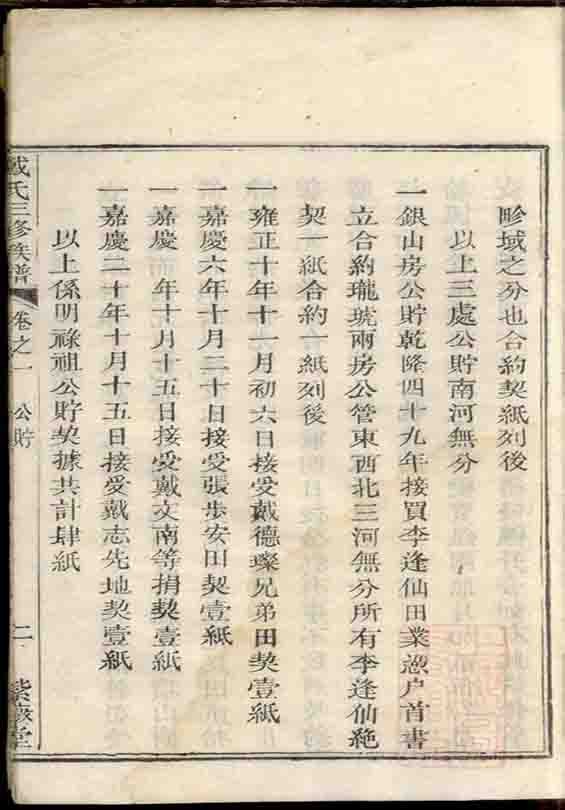 畛域之分也合約契紙列後
以上三處公貯南河無分
一銀山房公貯乾隆四十九年接買李逢仙田業憑户首書
立合約瓏琥兩房公管東西北三河無分所有李逢仙絶
契一紙合約一紙列後
一雍正十年十一月初六日接受戴德璨兄弟田契壹紙
一嘉慶六年十月二十日接受張步安田契壹紙
一嘉慶 年十月十五日接受戴文南等捐契壹紙
一嘉慶二十年十月十五日接受戴志先地契壹紙
以上係明祿祖公貯契據共計肆紙
戴氏三修族譜 卷之一 公貯 二 紫薇堂